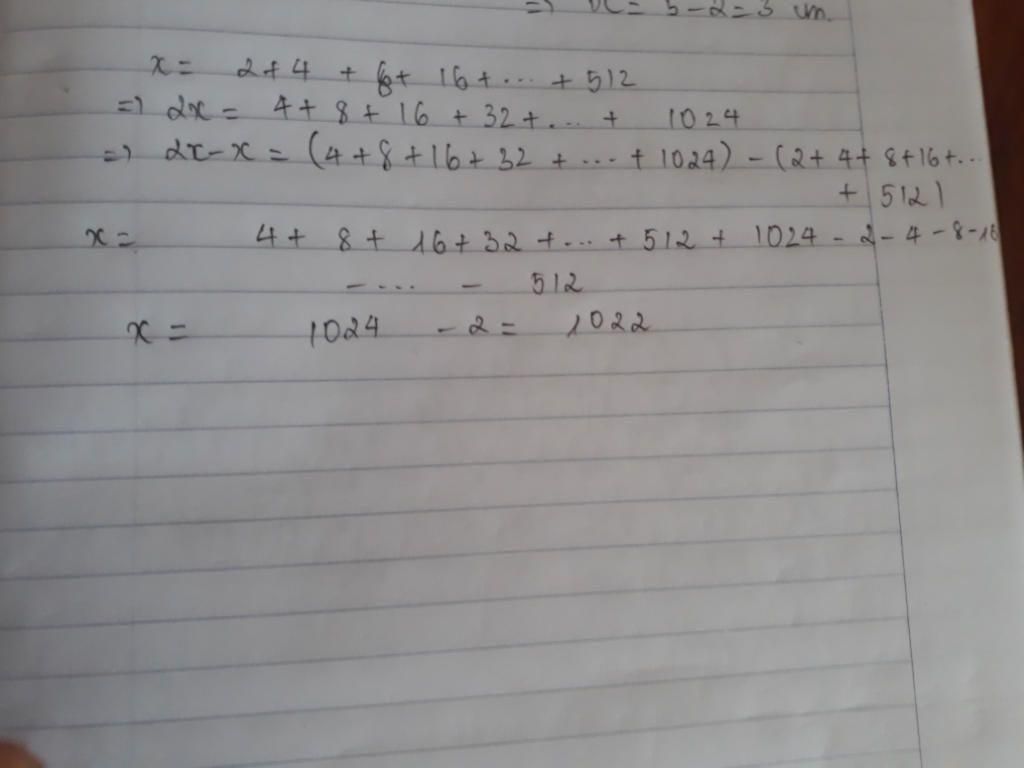 => = 5-2=3 cm.
x = 2+4 + 8+ 16+... + 512
=> 2x = 4+8+16 + 32+... + 1024
=> 2x-x = (4+8+16+32 +...+1024) - (2+4+ 8+16+...
+ 512)
x = 4+ 8+ 16+32 +...+512 + 1024 - 2 - 4 - 8-16
- ... - 512
x = 1024 - 2 = 1022